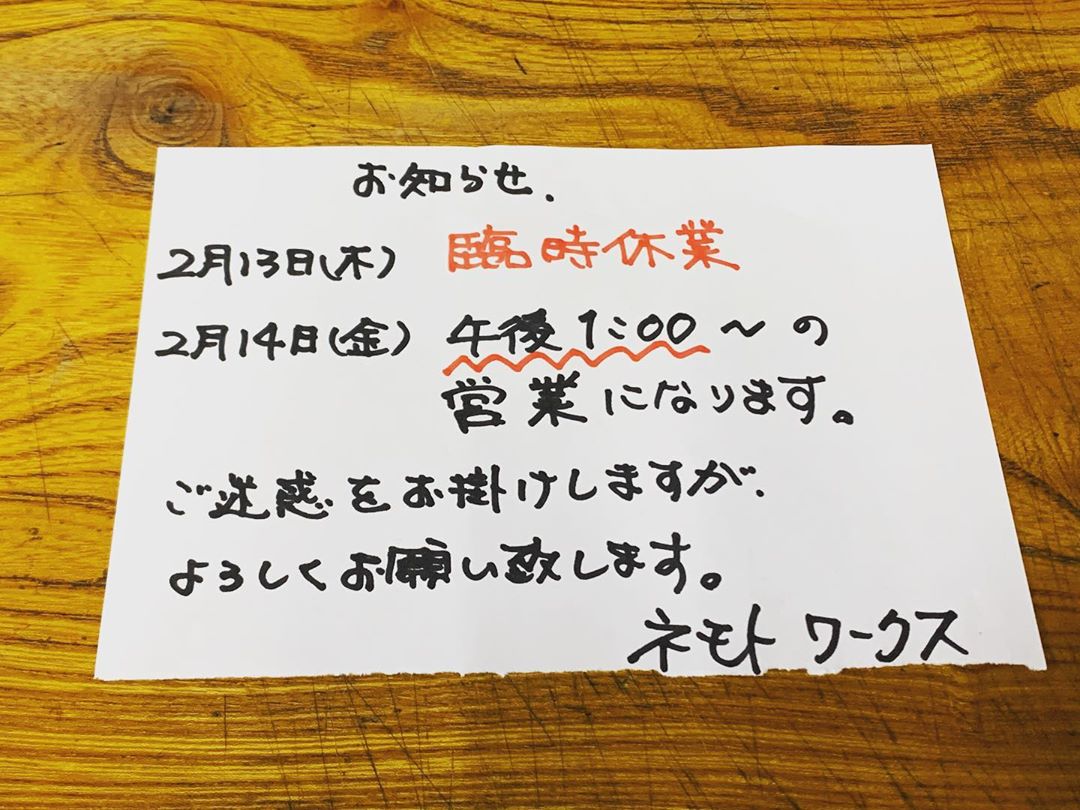 お知らせ.
2月13日(木) 臨時休業
2月14日(金) 午後1:00〜の
営業になります。
ご迷惑をお掛けしますが、
よろしくお願い致します。
ネモト ワークス